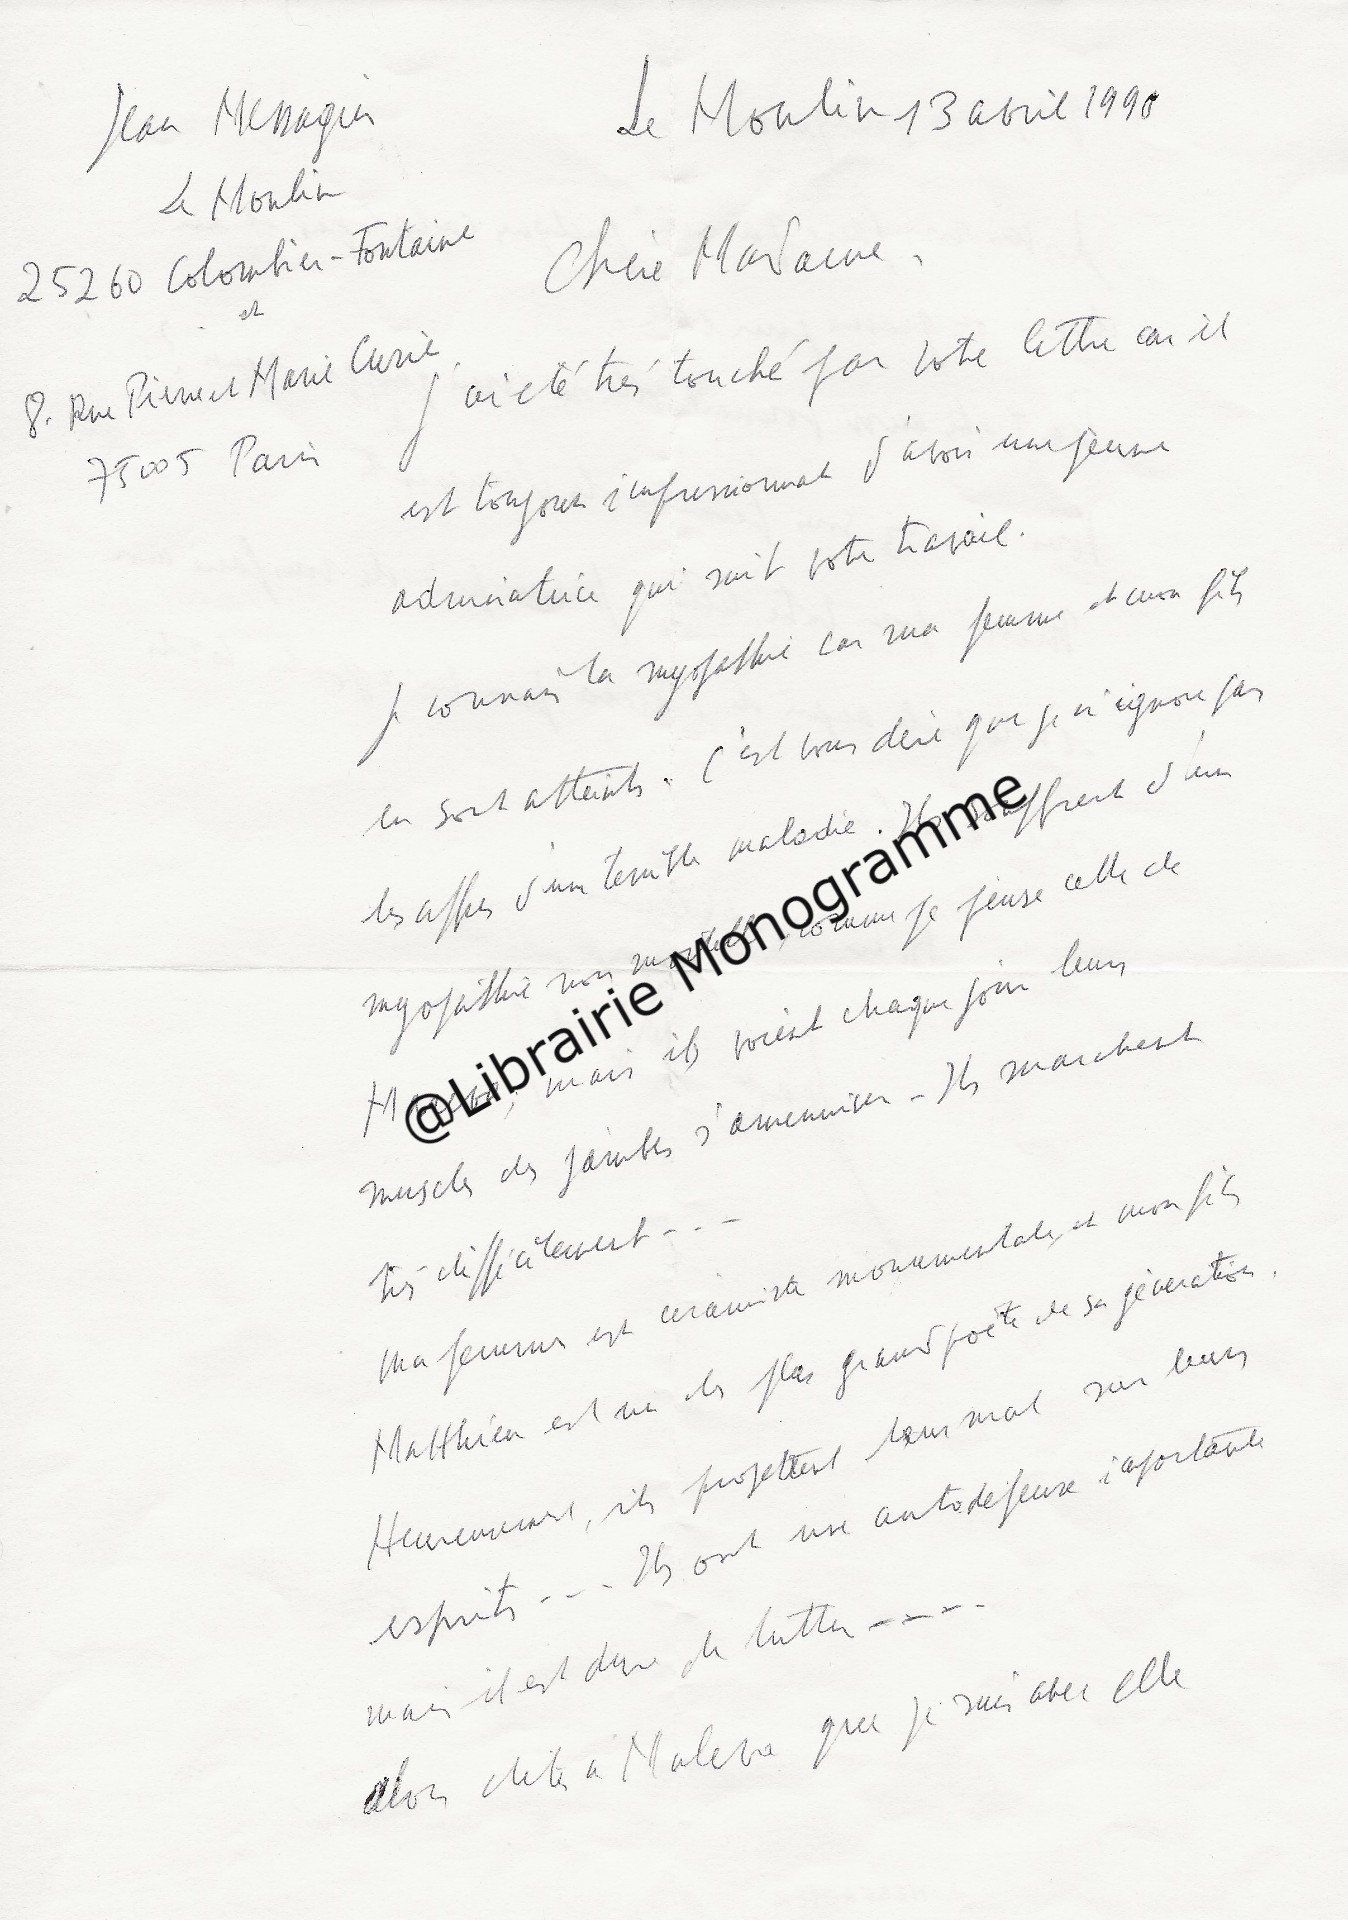 Jean Messagier
Le Moulin
25260 Colombier-Fontaine
et
8. Rue Pierre et Marie Curie
75005 Paris
Le Moulin 13 avril 1990
Chère Madame,
J'ai été très touché par votre lettre car il
est toujours impressionnant d'avoir une jeune
admiratrice qui suit votre travail.
Je connais la myopathie car ma femme et mon fils
en sont atteints. C'est vous dire que je n'ignore pas
les affres d'une terrible maladie. Ils souffrent d'une
myopathie non mortelle, comme je pense celle de
mais ils voient chaque jour leurs
muscles des jambes s'amenuiser - Ils marchent
très difficilement ---
Ma femme est céramiste monumentale, et mon fils
Matthieu est un des plus grand poète de sa génération.
Heureusement, ils projettent leur mal sur leurs
esprits --- Ils ont une autodéfense importante
mais il est dur de lutter ----
Alors dites à Maleva que je suis avec elle
@Librairie Monogramme